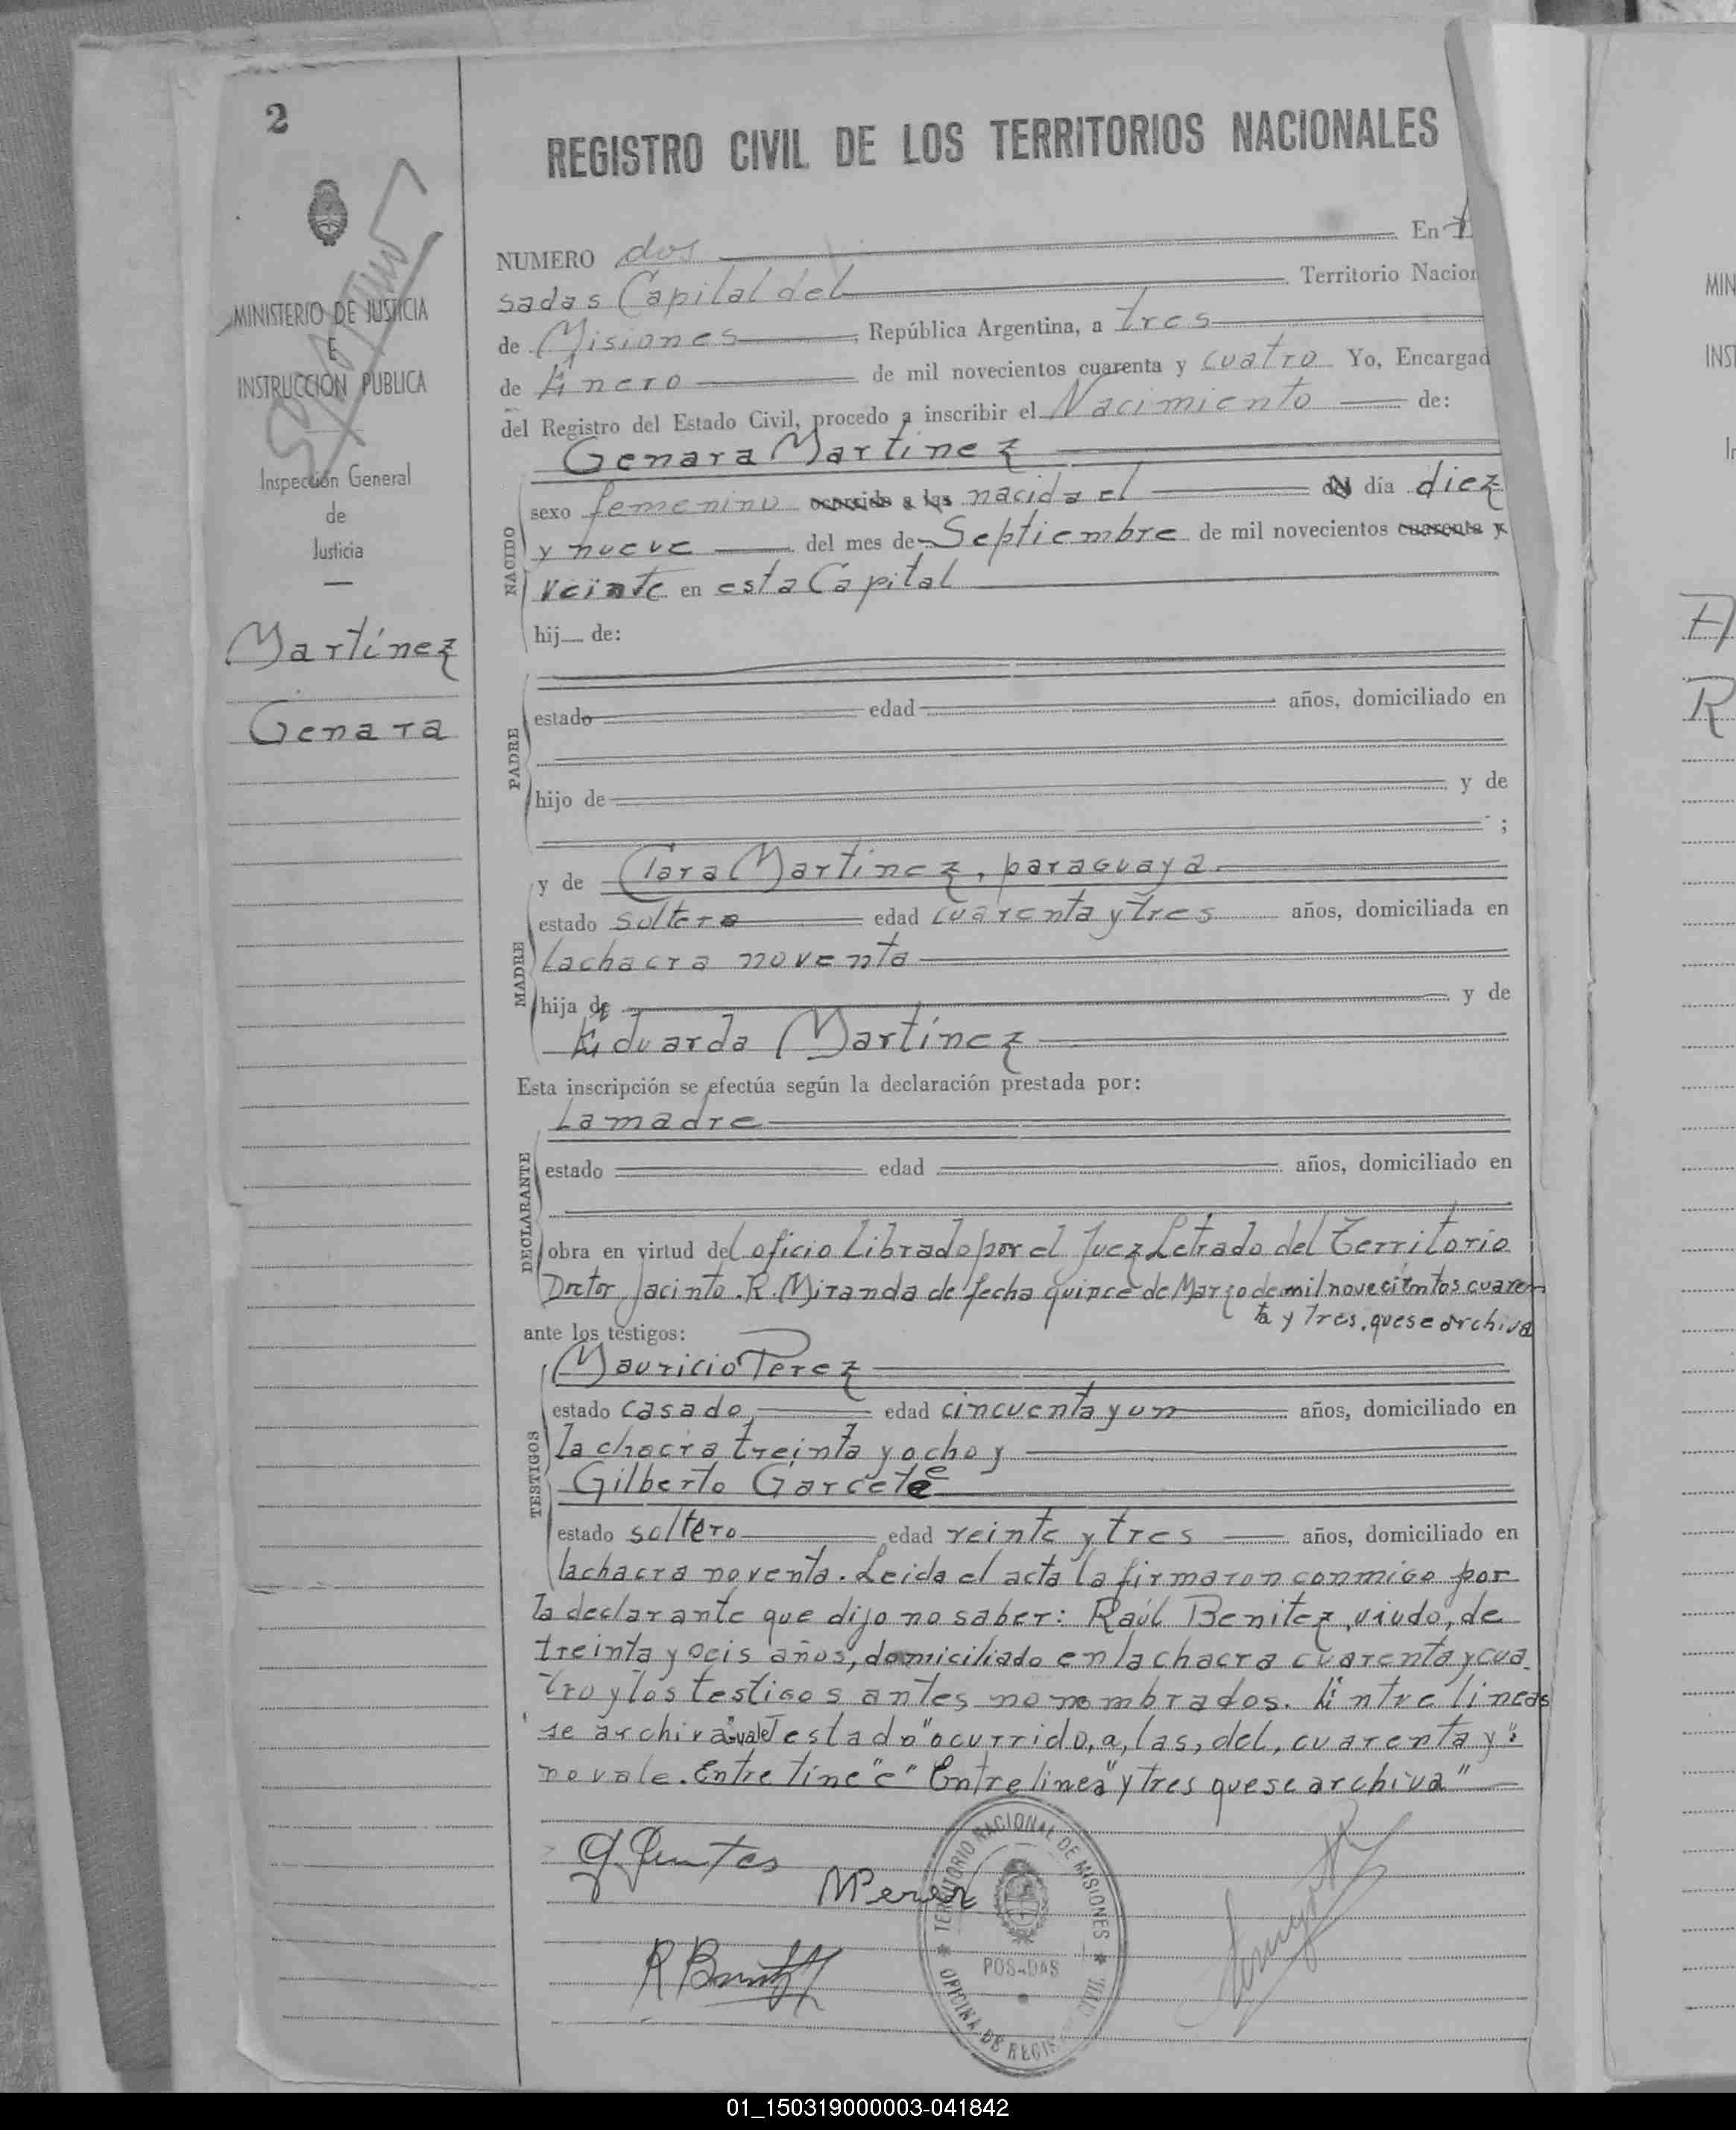 2
REGISTRO CIVIL DE LOS TERRITORIOS NACIONALES
NUMERO dos En
sadas Capital del Territorio Nacion
de Misiones, República Argentina, a tres
de Enero de mil novecientos cuarenta y cuatro Yo, Encargad
del Registro del Estado Civil, procedo a inscribir el Nacimiento de:
Genara Martinez
NACIDO
sexo femenino ocurrido a las nacida el del día diez
y nueve del mes de Septiembre de mil novecientos cuarenta y
veinte en esta Capital
hij de:
PADRE
estado edad años, domiciliado en
hijo de y de
;
MADRE
y de Clara Martinez, paraguaya.
estado soltera edad cuarenta y tres años, domiciliada en
la chacra noventa
hija de y de
Eduarda Martínez
Esta inscripción se efectúa según la declaración prestada por:
La madre
DECLARANTE
estado edad años, domiciliado en
obra en virtud del oficio librado por el Juez Letrado del Territorio
Doctor Jacinto. R. Miranda de fecha quince de Marzo de mil novecientos cuaren
ta y tres. que se archiva
ante los testigos:
TESTIGOS
Mauricio Perez
estado casado edad cincuenta y un años, domiciliado en
la chacra treinta y ocho y
Gilberto Garcete e
estado soltero edad veinte y tres años, domiciliado en
la chacra noventa. Leida el acta la firmaron conmigo por
la declarante que dijo no saber: Raúl Benitez, viudo, de
treinta y años, domiciliado en la chacra cuarenta y cua
tro y los testigos antes nombrados. Entre lineas
se archiva" vale Testado "ocurrido, a, las, del, cuarenta y":
no vale. Entre line "e" Entre linea "y tres que se archiva"
M Perez
R Benitez
TERRITORIO NACIONAL DE MISIONES
POSADAS
OFICINA DE REGIS CIVIL
MINISTERIO DE JUSTICIA
E
INSTRUCCION PUBLICA
Inspección General
de
Justicia
Martínez
Genara
MIN
INST
In
R
01_150319000003-041842